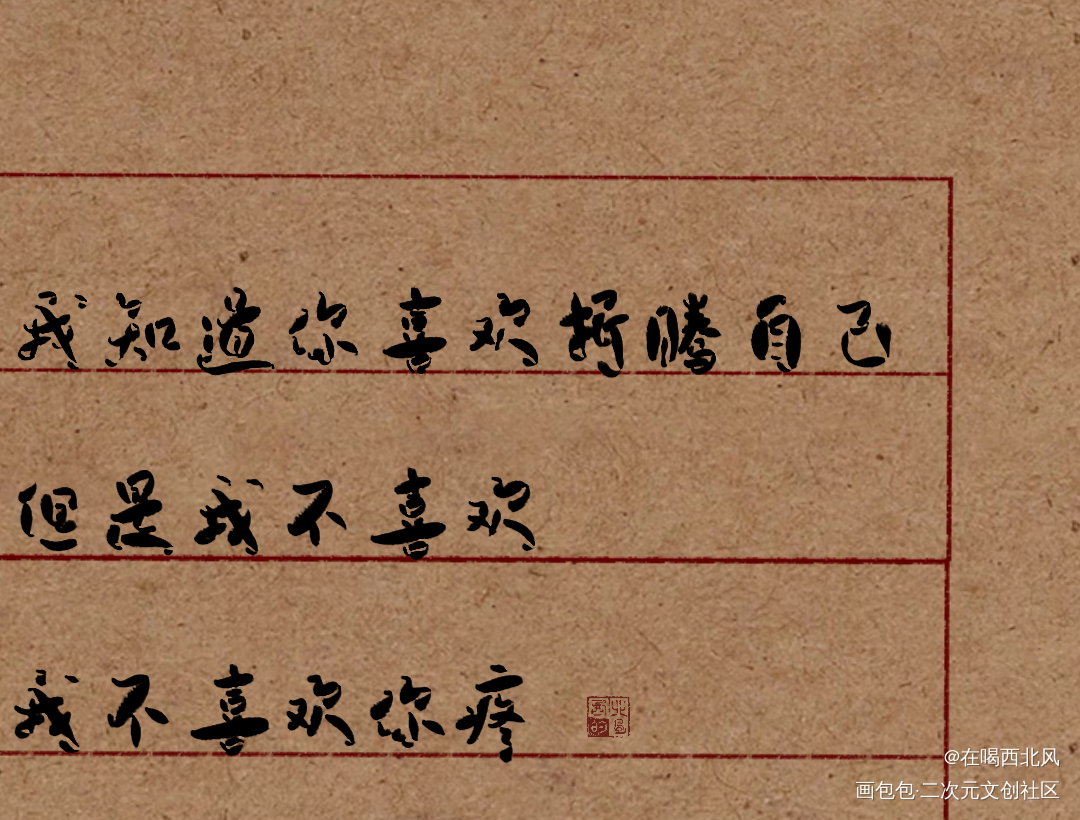 我知道你喜欢折腾自己
但是我不喜欢
我不喜欢你疼
@在喝西北风
画包包·二次元文创社区